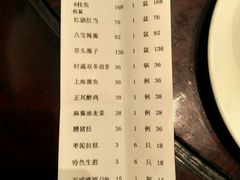 8桂鱼 168 1 盆 168
松鼠
红烧肚当 76 1 盆 76
八宝辣酱 92 1 盆 92
草头圈子 136 1 盆 136
时蔬双冬面筋 36 1 例 36
上海熏鱼 36 1 例 36
正兴醉鸡 38 1 例 38
麻酱油麦菜 28 1 例 28
糟猪肚 36 1 例 36
枣泥拉糕 3 6 只 18
特色生煎 3 6 只 18